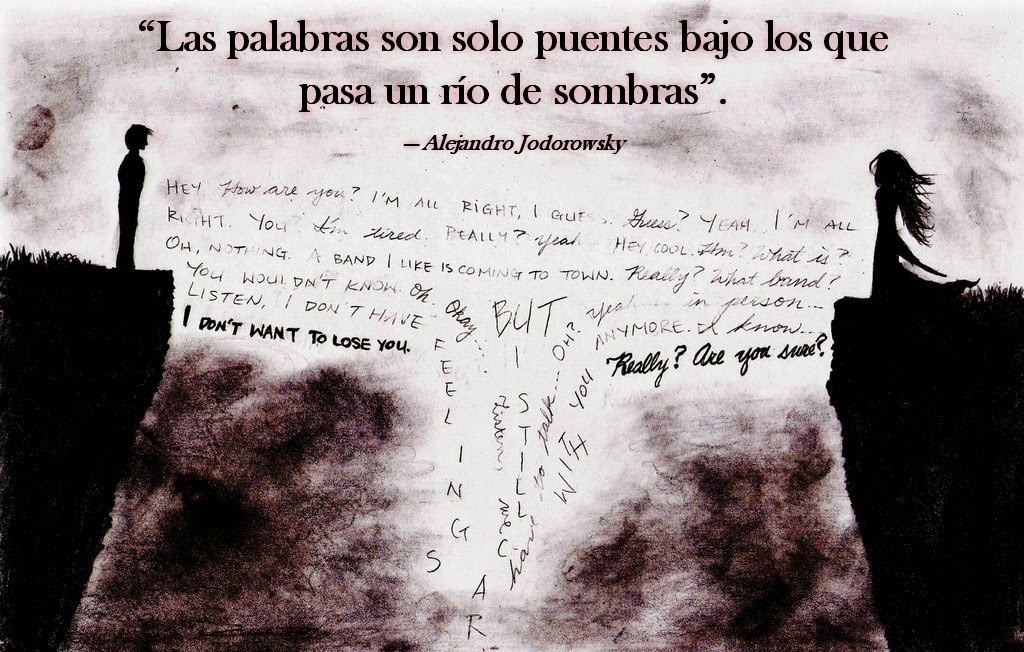 “Las palabras son solo puentes bajo los que
pasa un río de sombras”.
—Alejandro Jodorowsky
HEY How are you? I'M ALL RIGHT, I GUESS. Guess? YEAH, I'M ALL
RIGHT. YOU? I'm tired. REALLY? yeah HEY, COOL. Hm? What is?
OH, NOTHING. A BAND I LIKE IS COMING TO TOWN. Really? What band?
YOU WOULDN'T KNOW. Oh. Okay...
LISTEN, I DON'T HAVE
FEELINGS
WITH YOU ANYMORE. I know...
BUT
I STILL CAR
Listen, we
have to talk... OH? yeah in person...
I DON'T WANT TO LOSE YOU.
Really? Are you sure?